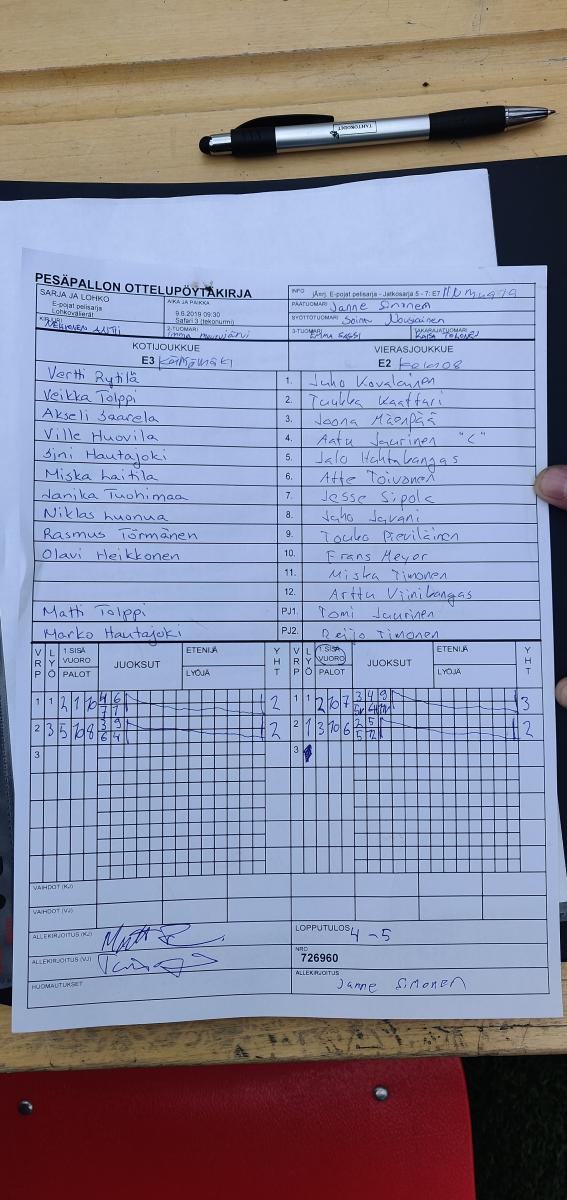 TAHTORIDET
PESÄPALLON OTTELUPÖYTÄKIRJA
SARJA JA LOHKO
E-pojat pelisarja
Lohkovälierät
AIKA JA PAIKKA
9.6.2019 09:30
Safari 3 (tekonurmi)
INFO
jÄnrj. E-pojat pelisarja - Jatkosarja 5 - 7: E7
PÄÄTUOMARI Janne Simonen
SYÖTTÖTUOMARI Soima Nousiainen
KIRJURI
2-TUOMARI
3-TUOMARI
TAKARAJATUOMARI
KOTIJOUKKUE
E3
VIERASJOUKKUE
E2
Vertti Rytilä 1. Juho Kovalainen
Veikka Tolppi 2. Tuukka Kaattari
Akseli Saarela 3. Joona Mäenpää
Ville Huovila 4. Aatu Jaurinen "C"
Sini Hautajoki 5. Jalo Huhtakangas
Miska Laitila 6. Atte Toivonen
Janika Tuohimaa 7. Jesse Sipola
Niklas Luonua 8. Juho Javani
Rasmus Törmänen 9. Touko Pieviläinen
Olavi Heikkonen 10. Frans Meyer
11. Miska Timonen
12. Arttu Viinikangas
Matti Tolppi PJ1. Tomi Jaurinen
Marko Hautajoki PJ2. Reijo Timonen
VRP LYÖ 1.SISÄ VUORO PALOT JUOKSUT ETENIJÄ LYÖJÄ YHT VRP LYÖ 1.SISÄ VUORO PALOT JUOKSUT ETENIJÄ LYÖJÄ YHT
1 1 2 1 10 4 6 2 1 1 2 10 7 3 4 9 3
7 7
2 3 5 10 8 3 9 2 2 1 3 10 6 2 5 2
6 4 5 12
3 3
VAIHDOT (KJ)
VAIHDOT (VJ)
ALLEKIRJOITUS (KJ)
LOPPUTULOS 4-5
ALLEKIRJOITUS (VJ)
NRO
726960
HUOMAUTUKSET
ALLEKIRJOITUS
Janne Simonen